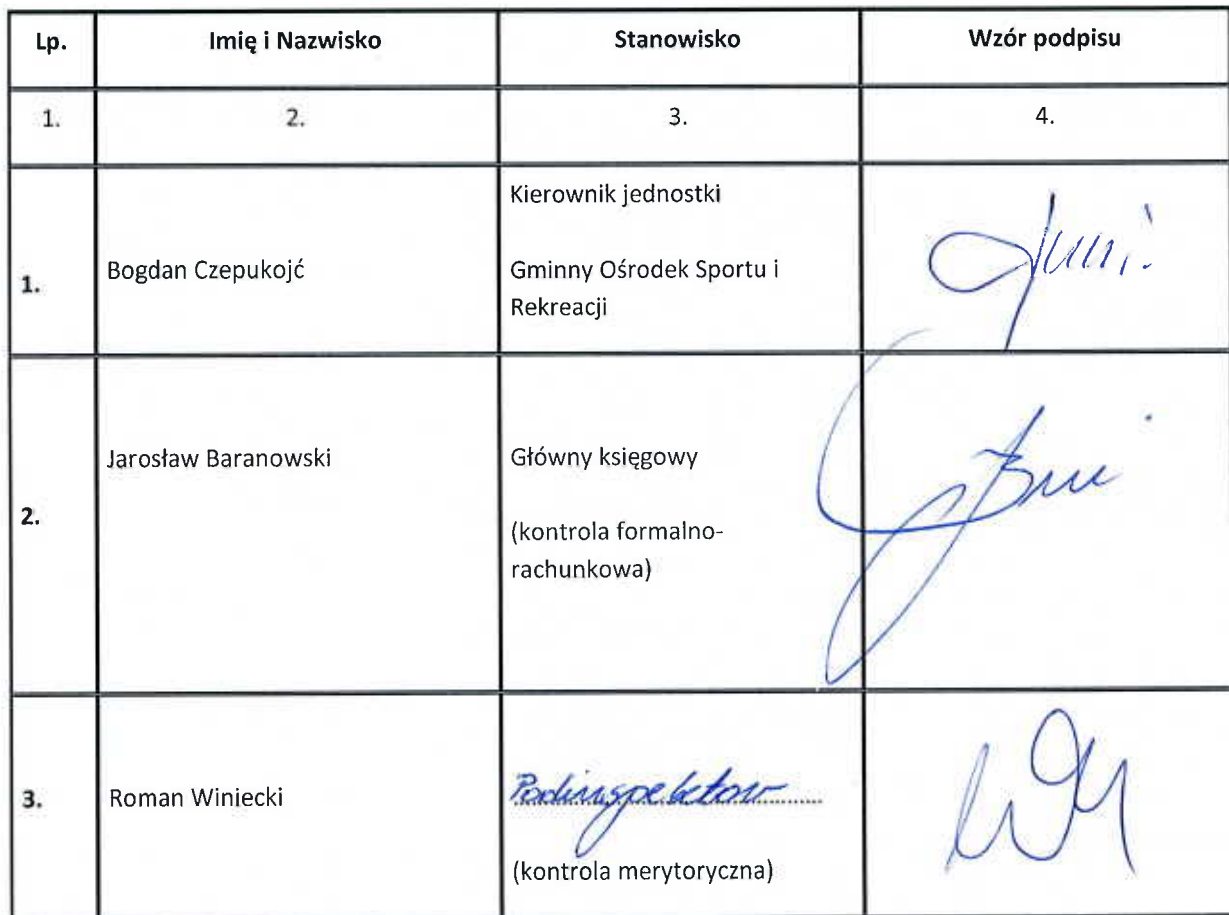 Lp. Imię i Nazwisko Stanowisko Wzór podpisu
1. 2. 3. 4.
Kierownik jednostki
1. Bogdan Czepukojć Gminny Ośrodek Sportu i
Rekreacji
Jarosław Baranowski Główny księgowy
2.
(kontrola formalno-
rachunkowa)
3. Roman Winiecki Podinspektor
(kontrola merytoryczna)